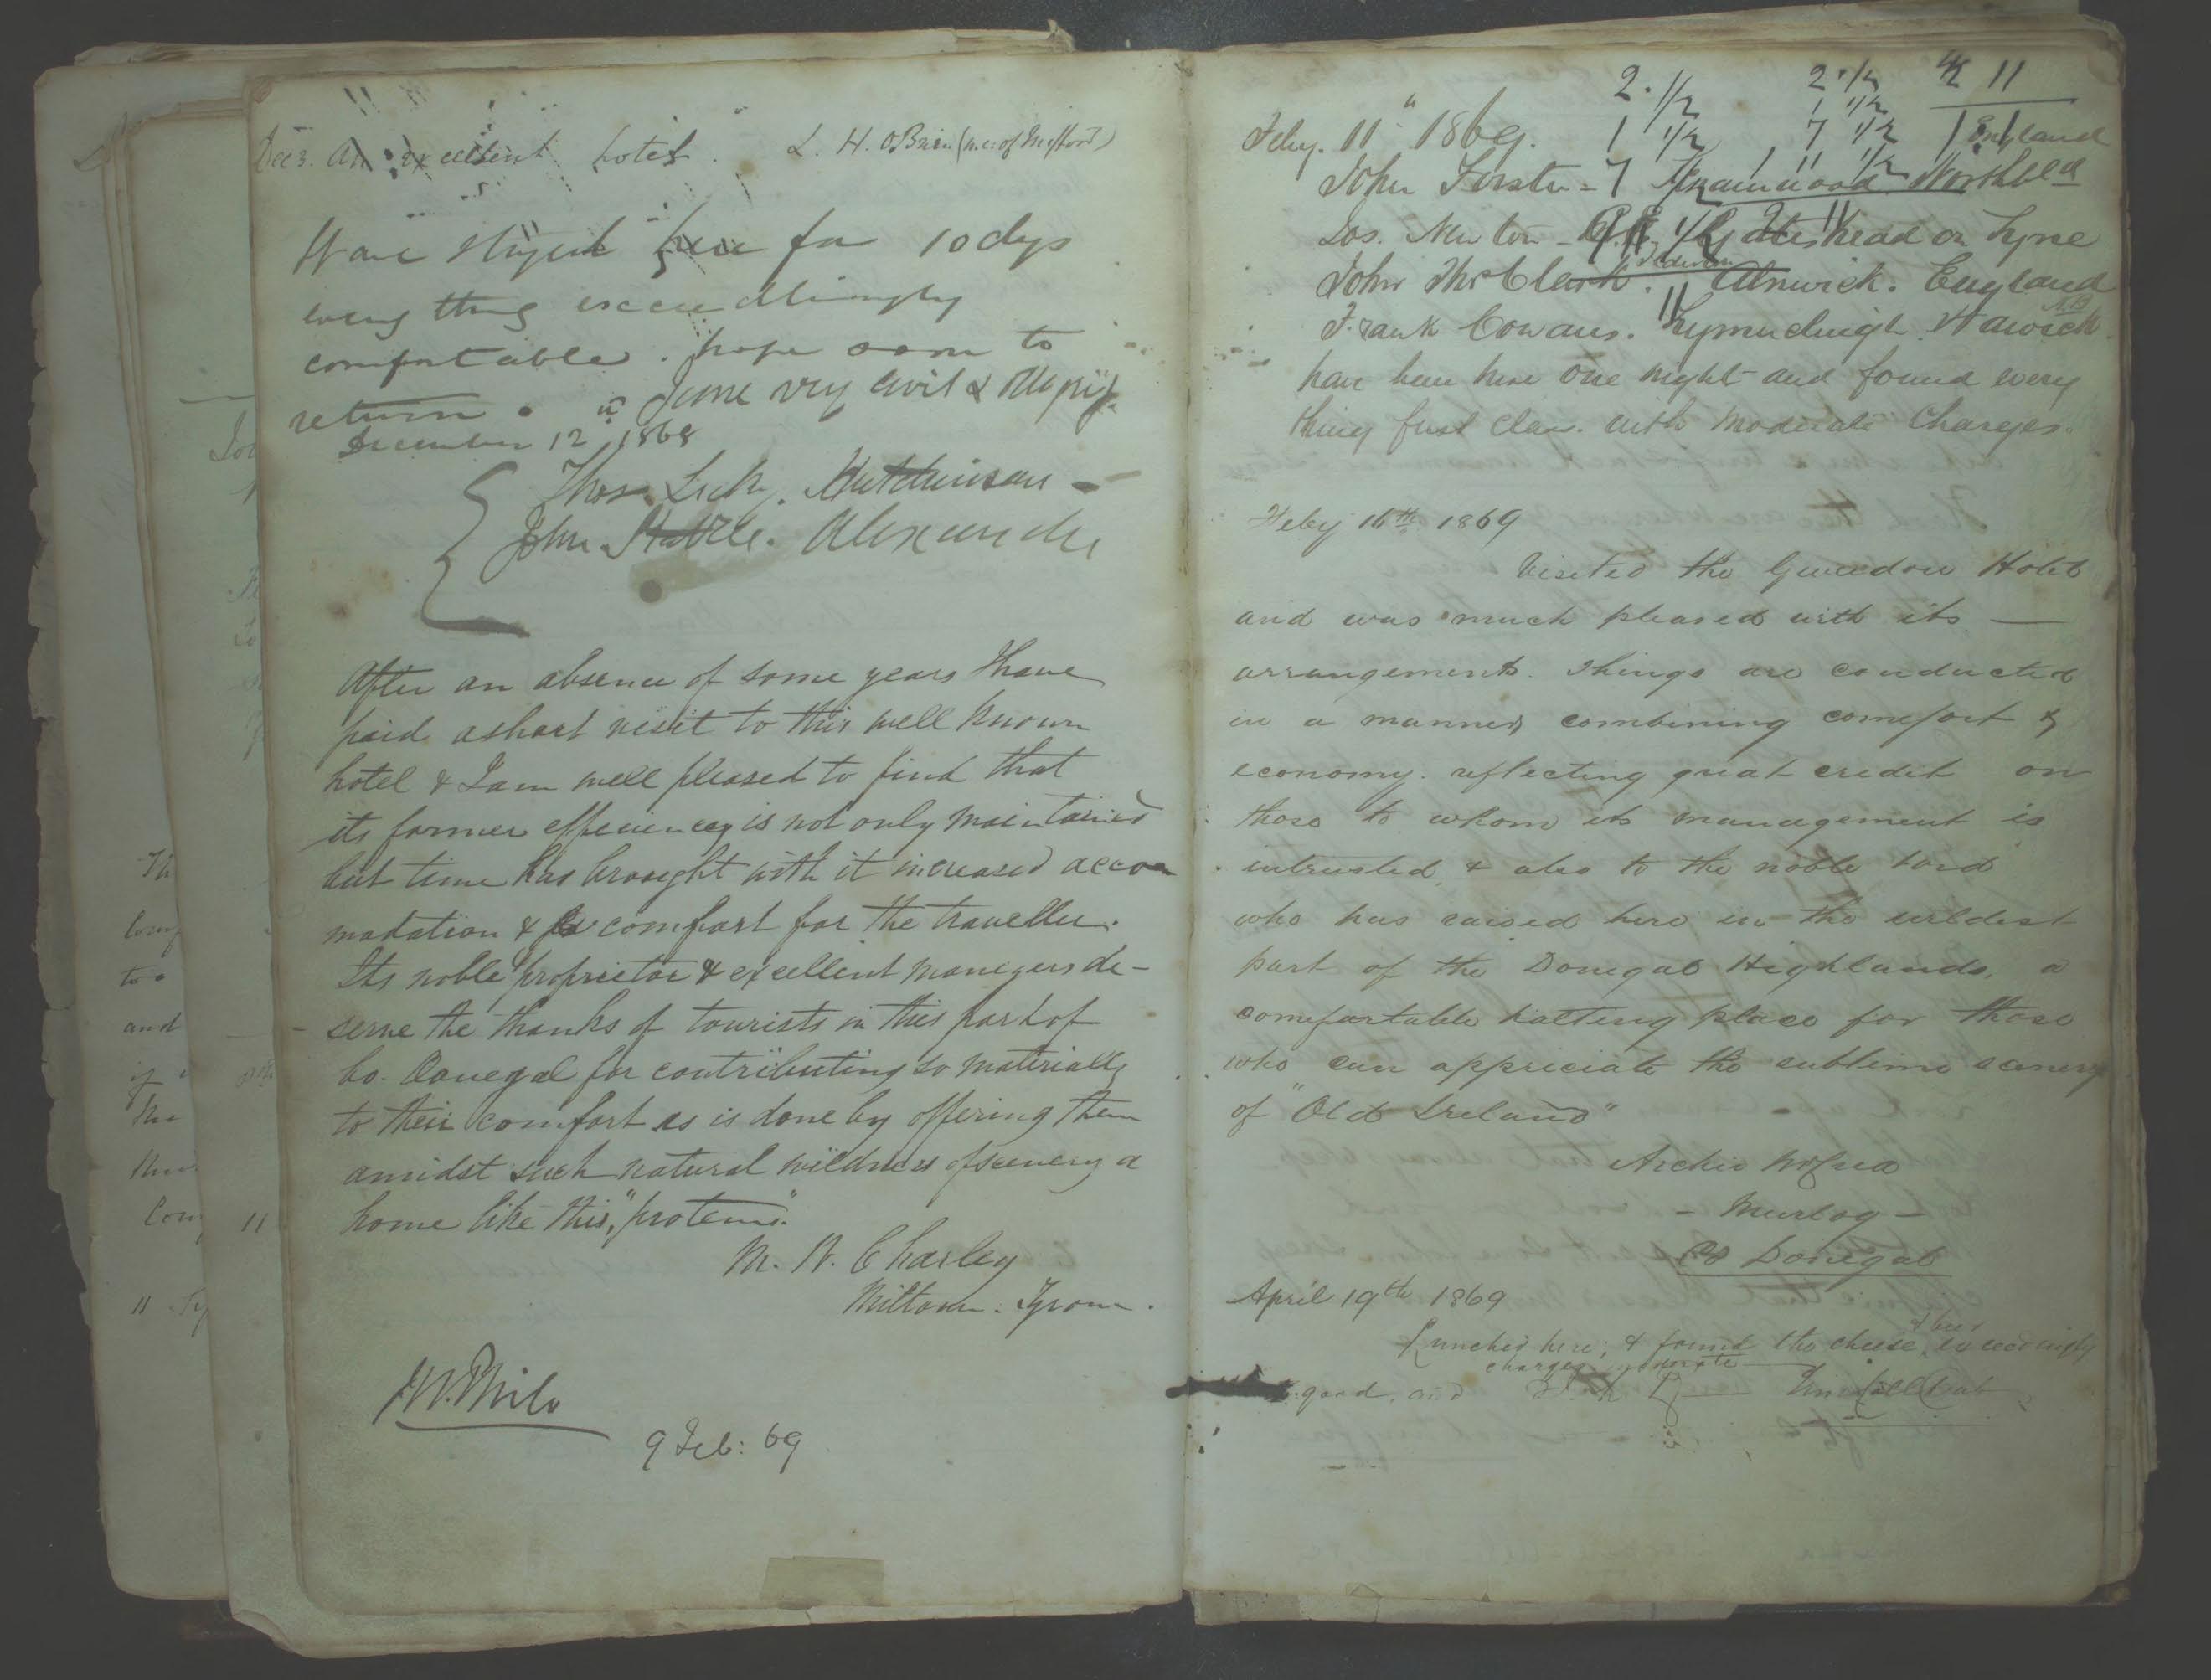 Dec 3. An excellent hotel. L. H. OBrien
Have stayed here for 10 dys
every thing exceedlingly
comfortable. hope soon to
return. Game very civil &
December 12th 1868
Thos. Hutchinson
John Alexander
After an absence of some years I have
paid a short visit to this well known
hotel & I am well pleased to find that
its former efficiency is not only maintained
but time has brought with it increased accom
modation & comfort for the traveller.
Its noble proprietor & excellent managers de-
serve the thanks of tourists in this part of
Co. Donegal for contributing so materially
to their comfort as is done by offering them
amidst such natural wildness of scenery a
home like this, "protem".
M. W. Charley
Milltown. Tyrone.
9 Feb: 69
2. 1/2 2. 1/2 11
Feby. 11" 1869. 1 1/2 7 1/2 England
John Forster - 7
Jos. Newton - Gateshead on Tyne
John McClark. Alnwick. England
Frank Cowans. Hawick NB
have been here one night and found every
thing first class. with moderate Charges.
Feby 16th 1869
Visited the Gweedore Hotel
and was much pleased with its —
arrangements. Things are conducted
in a manner combining comfort &
economy. reflecting great credit on
those to whom its management is
intrusted, & also to the noble Lord
who has raised here in the wildest
part of the Donegal Highlands, a
comfortable halting place for those
who can appreciate the sublime scenery
of "Old Ireland"
Archie
- Murlog -
Co Donegal
April 19th 1869
Lunched here; & found the cheese & beer exceedingly
good, and charges moderate